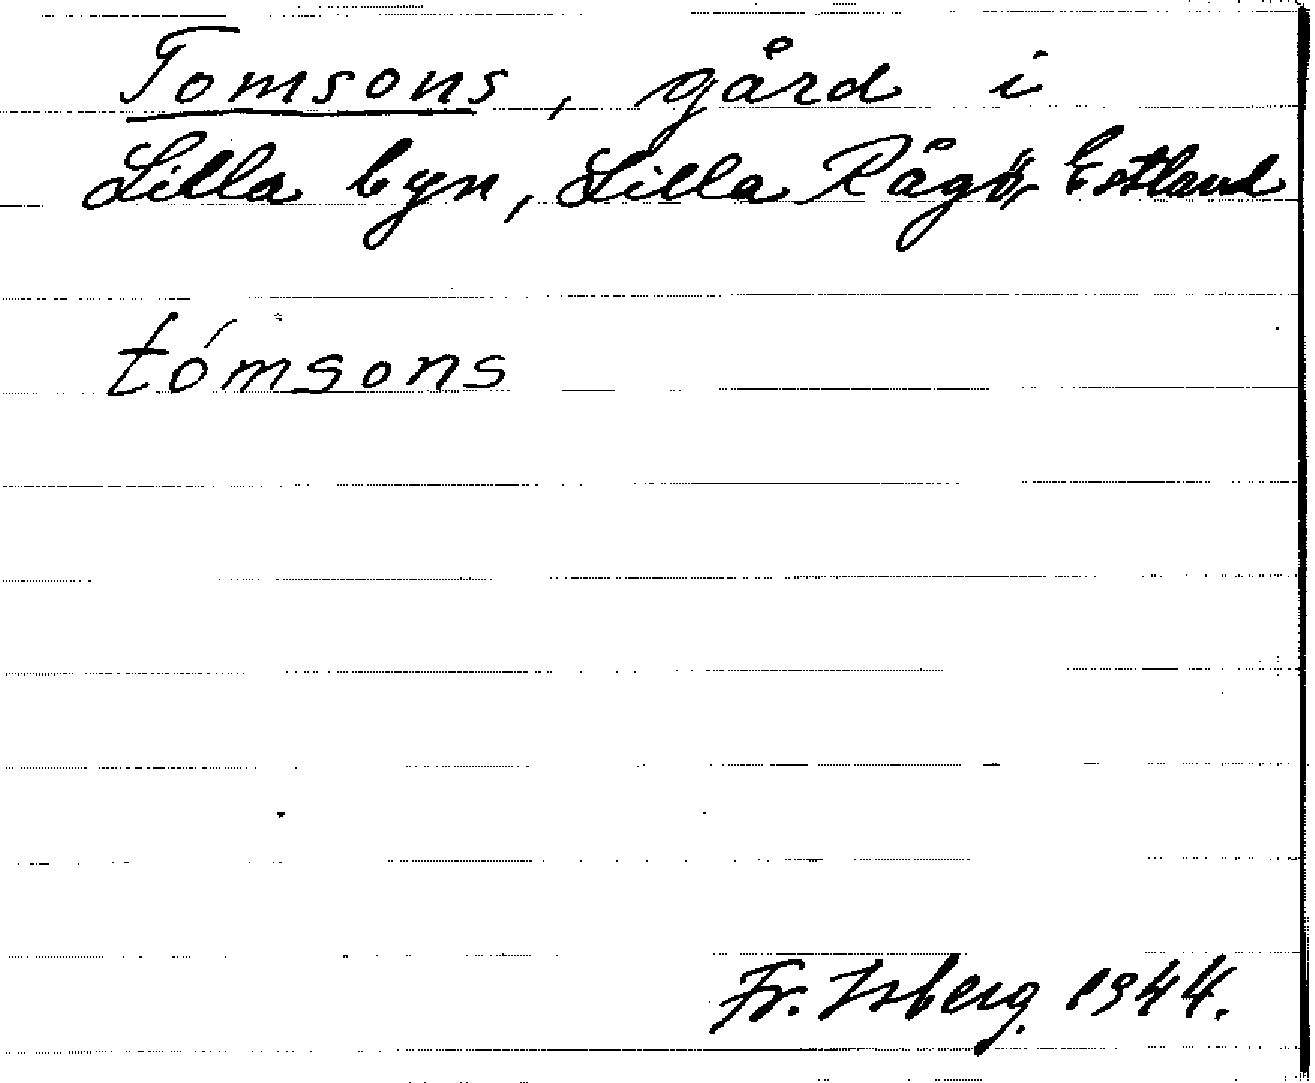 Tomsons, gård i
Lilla byn, Lilla Rågö, Estland
tómsons
Fr. Isberg. 1944.